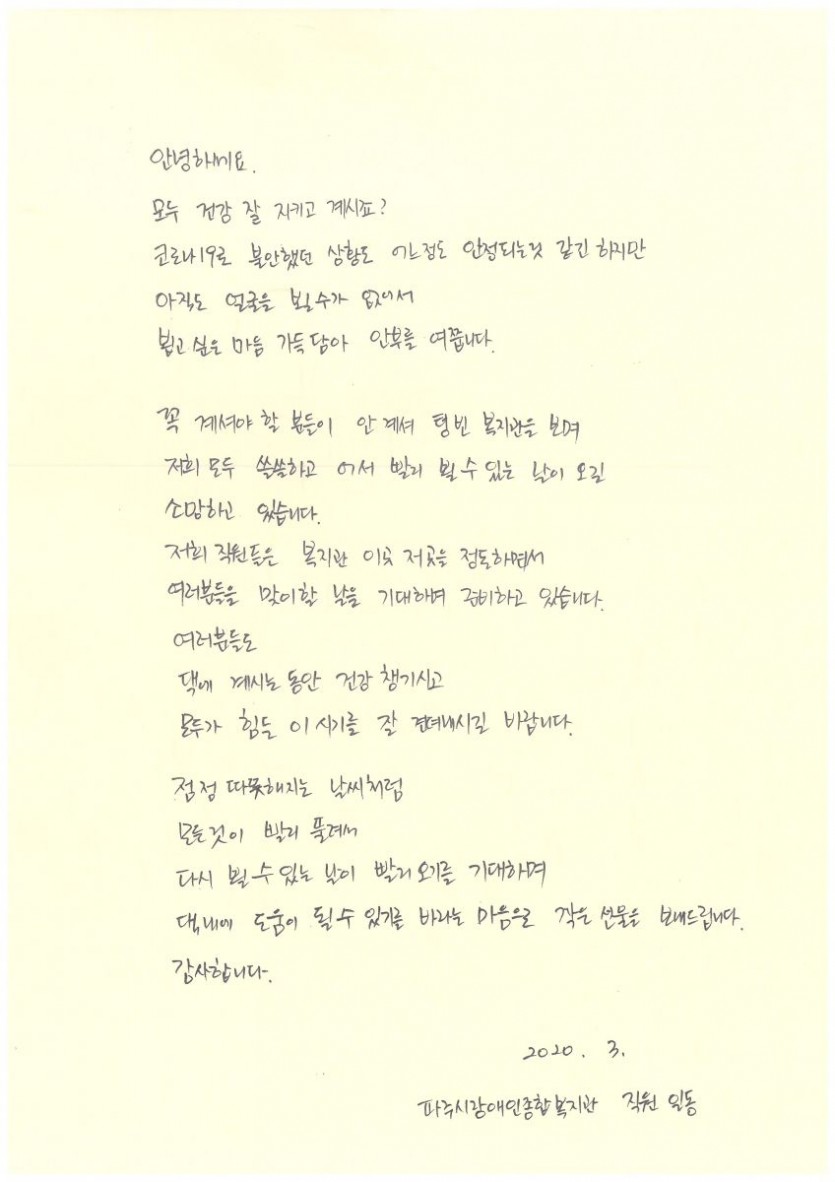 안녕하세요.
모두 건강 잘 지키고 계시죠?
코로나19로 불안했던 상황도 어느정도 안정되는것 같긴 하지만
아직도 얼굴을 뵐수가 없어서
뵙고 싶은 마음 가득 담아 안부를 여쭙니다.
꼭 계셔야 할 분들이 안 계셔 텅빈 복지관을 보며
저희 모두 쓸쓸하고 어서 빨리 뵐 수 있는 날이 오길
소망하고 있습니다.
저희 직원들은 복지관 이곳 저곳을 정돈하면서
여러분들을 맞이할 날을 기대하며 준비하고 있습니다.
여러분들도
댁에 계시는 동안 건강 챙기시고
모두가 힘든 이 시기를 잘 견뎌내시길 바랍니다.
점점 따뜻해지는 날씨처럼
모든것이 빨리 풀려서
다시 뵐 수 있는 날이 빨리 오기를 기대하며
댁내에 도움이 될 수 있기를 바라는 마음으로 작은 선물을 보내드립니다.
감사합니다.
2020. 3.
파주시장애인종합복지관 직원 일동